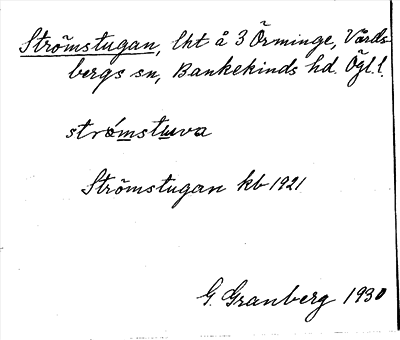 Strömstugan, lht å 3 Örminge, Vårds-
bergs sn, Bankekinds hd. Ögl. l.
strómstuva
Strömstugan kb 1921
G. Granberg 1930